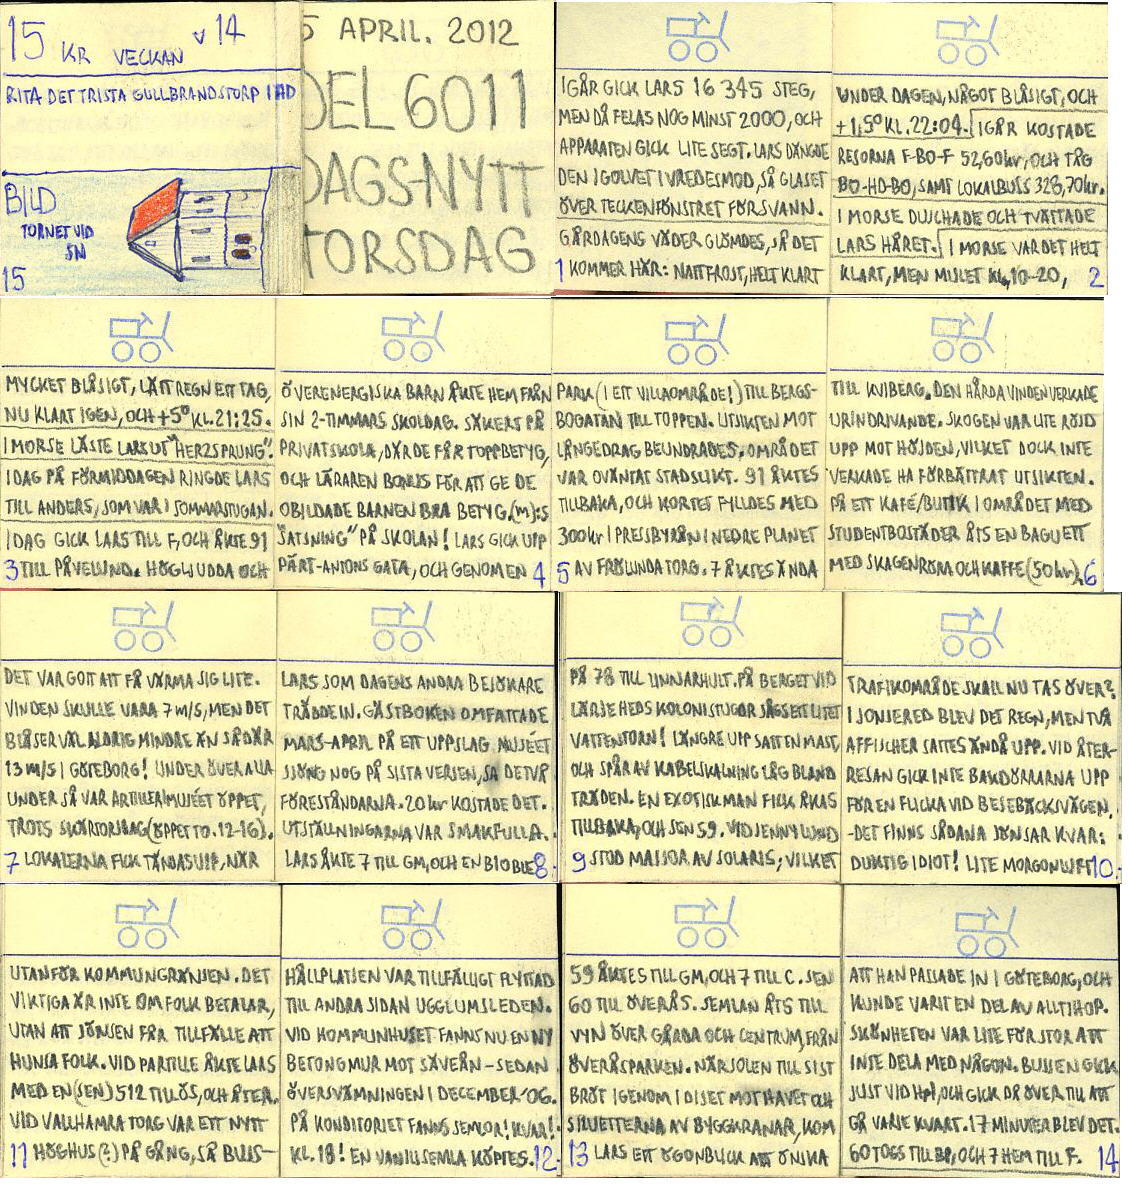 15 KR VECKAN v 14
RITA DET TRISTA GULLBRANDSTORP I HD
BILD
TORNET VID
SN
15
5 APRIL. 2012
DEL 6011
DAGS-NYTT
TORSDAG
IGÅR GICK LARS 16 345 STEG,
MEN DÅ FELAS NOG MINST 2000, OCH
APPARATEN GICK LITE SEGT. LARS DÄNGDE
DEN I GOLVET I VREDESMOD, SÅ GLASET
ÖVER TECKENFÖNSTRET FÖRSVANN.
GÅRDAGENS VÄDER GLÖMDES, SÅ DET
1 KOMMER HÄR: NATTFROST, HELT KLART
UNDER DAGEN, NÅGOT BLÅSIGT, OCH
+1,5° KL. 22:04. IGÅR KOSTADE
RESORNA F-BO-F 52,60 kr, OCH TÅG
BO-HD-BO, SAMT LOKALBUSS 328,70 kr.
I MORSE DUSCHADE OCH TVÄTTADE
LARS HÅRET. I MORSE VAR DET HELT
KLART, MEN MULET KL. 10-20, 2
MYCKET BLÅSIGT, LÄTT REGN ETT TAG,
NU KLART IGEN, OCH +5° KL. 21:25.
I MORSE LÄSTE LARS UT "HERZSPRUNG".
IDAG PÅ FÖRMIDDAGEN RINGDE LARS
TILL ANDERS, SOM VAR I SOMMARSTUGAN.
IDAG GICK LARS TILL F, OCH ÅKTE 91
3 TILL PÅVELUND. HÖGLJUDDA OCH
ÖVERENERGISKA BARN ÅKTE HEM FRÅN
SIN 2-TIMMARS SKOLDAG. SÄKERT PÅ
PRIVATSKOLA, DÄR DE FÅR TOPPBETYG,
OCH LÄRAREN BONUS FÖR ATT GE DE
OBILDADE BARNEN BRA BETYG. (M):S
"SATSNING" PÅ SKOLAN! LARS GICK UPP
PÄRT-ANTONS GATA, OCH GENOM EN 4
PARK (I ETT VILLAOMRÅDE!) TILL BERGS-
BOGATAN TILL TOPPEN. UTSIKTEN MOT
LÅNGEDRAG BEUNDRADES. OMRÅDET
VAR OVÄNTAT STADSLIKT. 91 ÅKTES
TILLBAKA, OCH KORTET FYLLDES MED
300 kr I PRESSBYRÅN I NEDRE PLANET
5 AV FRÖLUNDA TORG. 7 ÅKTES ÄNDA
TILL KVIBERG. DEN HÅRDA VINDEN VERKADE
URINDRIVANDE. SKOGEN VAR LITE RÖJD
UPP MOT HÖJDEN, VILKET DOCK INTE
VERKADE HA FÖRBÄTTRAT UTSIKTEN.
PÅ ETT KAFÉ/BUTIK I OMRÅDET MED
STUDENTBOSTÄDER ÅTS EN BAGUETT
MED SKAGENRÖRA OCH KAFFE (50 kr). 6
DET VAR GOTT ATT FÅ VÄRMA SIG LITE.
VINDEN SKULLE VARA 7 M/S, MEN DET
BLÅSER VÄL ALDRIG MINDRE ÄN SÅDÄR
13 M/S I GÖTEBORG! UNDER ÖVER ALLA
UNDER SÅ VAR ARTILLERIMUSÉET ÖPPET,
TROTS SKÄRTORSDAG (ÖPPET TO. 12-16).
7 LOKALERNA FICK TÄNDAS UPP, NÄR
LARS SOM DAGENS ANDRA BESÖKARE
TRÄDDE IN. GÄSTBOKEN OMFATTADE
MARS-APRIL PÅ ETT UPPSLAG. MUSÉET
SJÖNG NOG PÅ SISTA VERSEN, SA DE TVÅ
FÖRESTÅNDARNA. 20 kr KOSTADE DET.
UTSTÄLLNINGARNA VAR SMAKFULLA.
LARS ÅKTE 7 TILL GM, OCH EN BIOBLE 8
PÅ 78 TILL LINNARHULT. PÅ BERGET VID
LÄRJEHEDS KOLONISTUGOR SÅGS ETT LITET
VATTENTORN! LÄNGRE UPP SATT EN MAST,
OCH SPÅR AV KABELSKALNING LÅG BLAND
TRÄDEN. EN EXOTISK MAN FICK ÅKAS
TILLBAKA, OCH SEN 59. VID JENNY LIND
9 STOD MASSOR AV SOLARIS; VILKET
TRAFIKOMRÅDE SKALL NU TAS ÖVER?
I JONSERED BLEV DET REGN, MEN TVÅ
AFFISCHER SATTES ÄNDÅ UPP. VID ÅTER-
RESAN GICK INTE BAKDÖRRARNA UPP
FÖR EN FLICKA VID BESEBÄCKSVÄGEN.
-DET FINNS SÅDANA JÖNSAR KVAR:
DUKTIG IDIOT! LITE MORGONLUFT 10
UTANFÖR KOMMUNGRÄNSEN. DET
VIKTIGA ÄR INTE OM FOLK BETALAR,
UTAN ATT JÖNSEN FÅR TILLFÄLLE ATT
HUNSA FOLK. VID PARTILLE ÅKTE LARS
MED EN (SEN) 512 TILL ÖS, OCH ÅTER.
VID VALLHAMRA TORG VAR ETT NYTT
11 HÖGHUS (?) PÅ GÅNG, SÅ BUSS-
HÅLLPLATSEN VAR TILLFÄLLIGT FLYTTAD
TILL ANDRA SIDAN UGGLUMSLEDEN.
VID KOMMUNHUSET FANNS NU EN NY
BETONGMUR MOT SÄVEÅN - SEDAN
ÖVERSVÄMNINGEN I DECEMBER '06.
PÅ KONDITORIET FANNS SEMLOR! KVAR!
KL. 18! EN VANILJSEMLA KÖPTES. 12
59 ÅKTES TILL GM, OCH 7 TILL C. SEN
60 TILL ÖVERÅS. SEMLAN ÅTS TILL
VYN ÖVER GÅRDA OCH CENTRUM, FRÅN
ÖVERÅSPARKEN. NÄR SOLEN TILL SIST
BRÖT IGENOM I DISET MOT HAVET OCH
SILUETTERNA AV BYGGKRANAR, KOM
13 LARS ETT ÖGONBLICK ATT ÖNSKA
ATT HAN PASSADE IN I GÖTEBORG, OCH
KUNDE VARIT EN DEL AV ALLTIHOP.
SKÖNHETEN VAR LITE FÖR STOR ATT
INTE DELA MED NÅGON. BUSSEN GICK
JUST VID HPL, OCH GICK DÅ ÖVER TILL ATT
GÅ VARJE KVART. 17 MINUTER BLEV DET.
60 TOGS TILL BP, OCH 7 HEM TILL F. 14